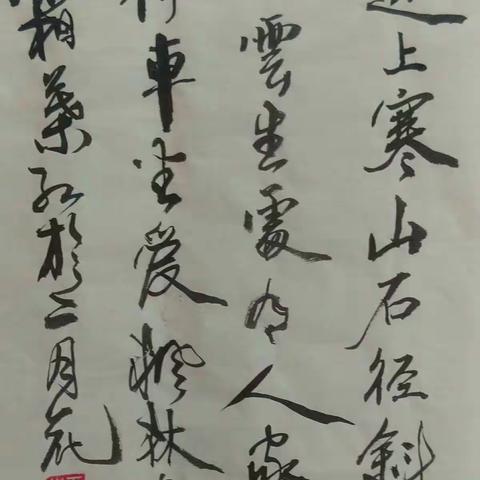 遠上寒山石径斜
雲生處有人家
停車坐愛楓林
霜葉红於二月花